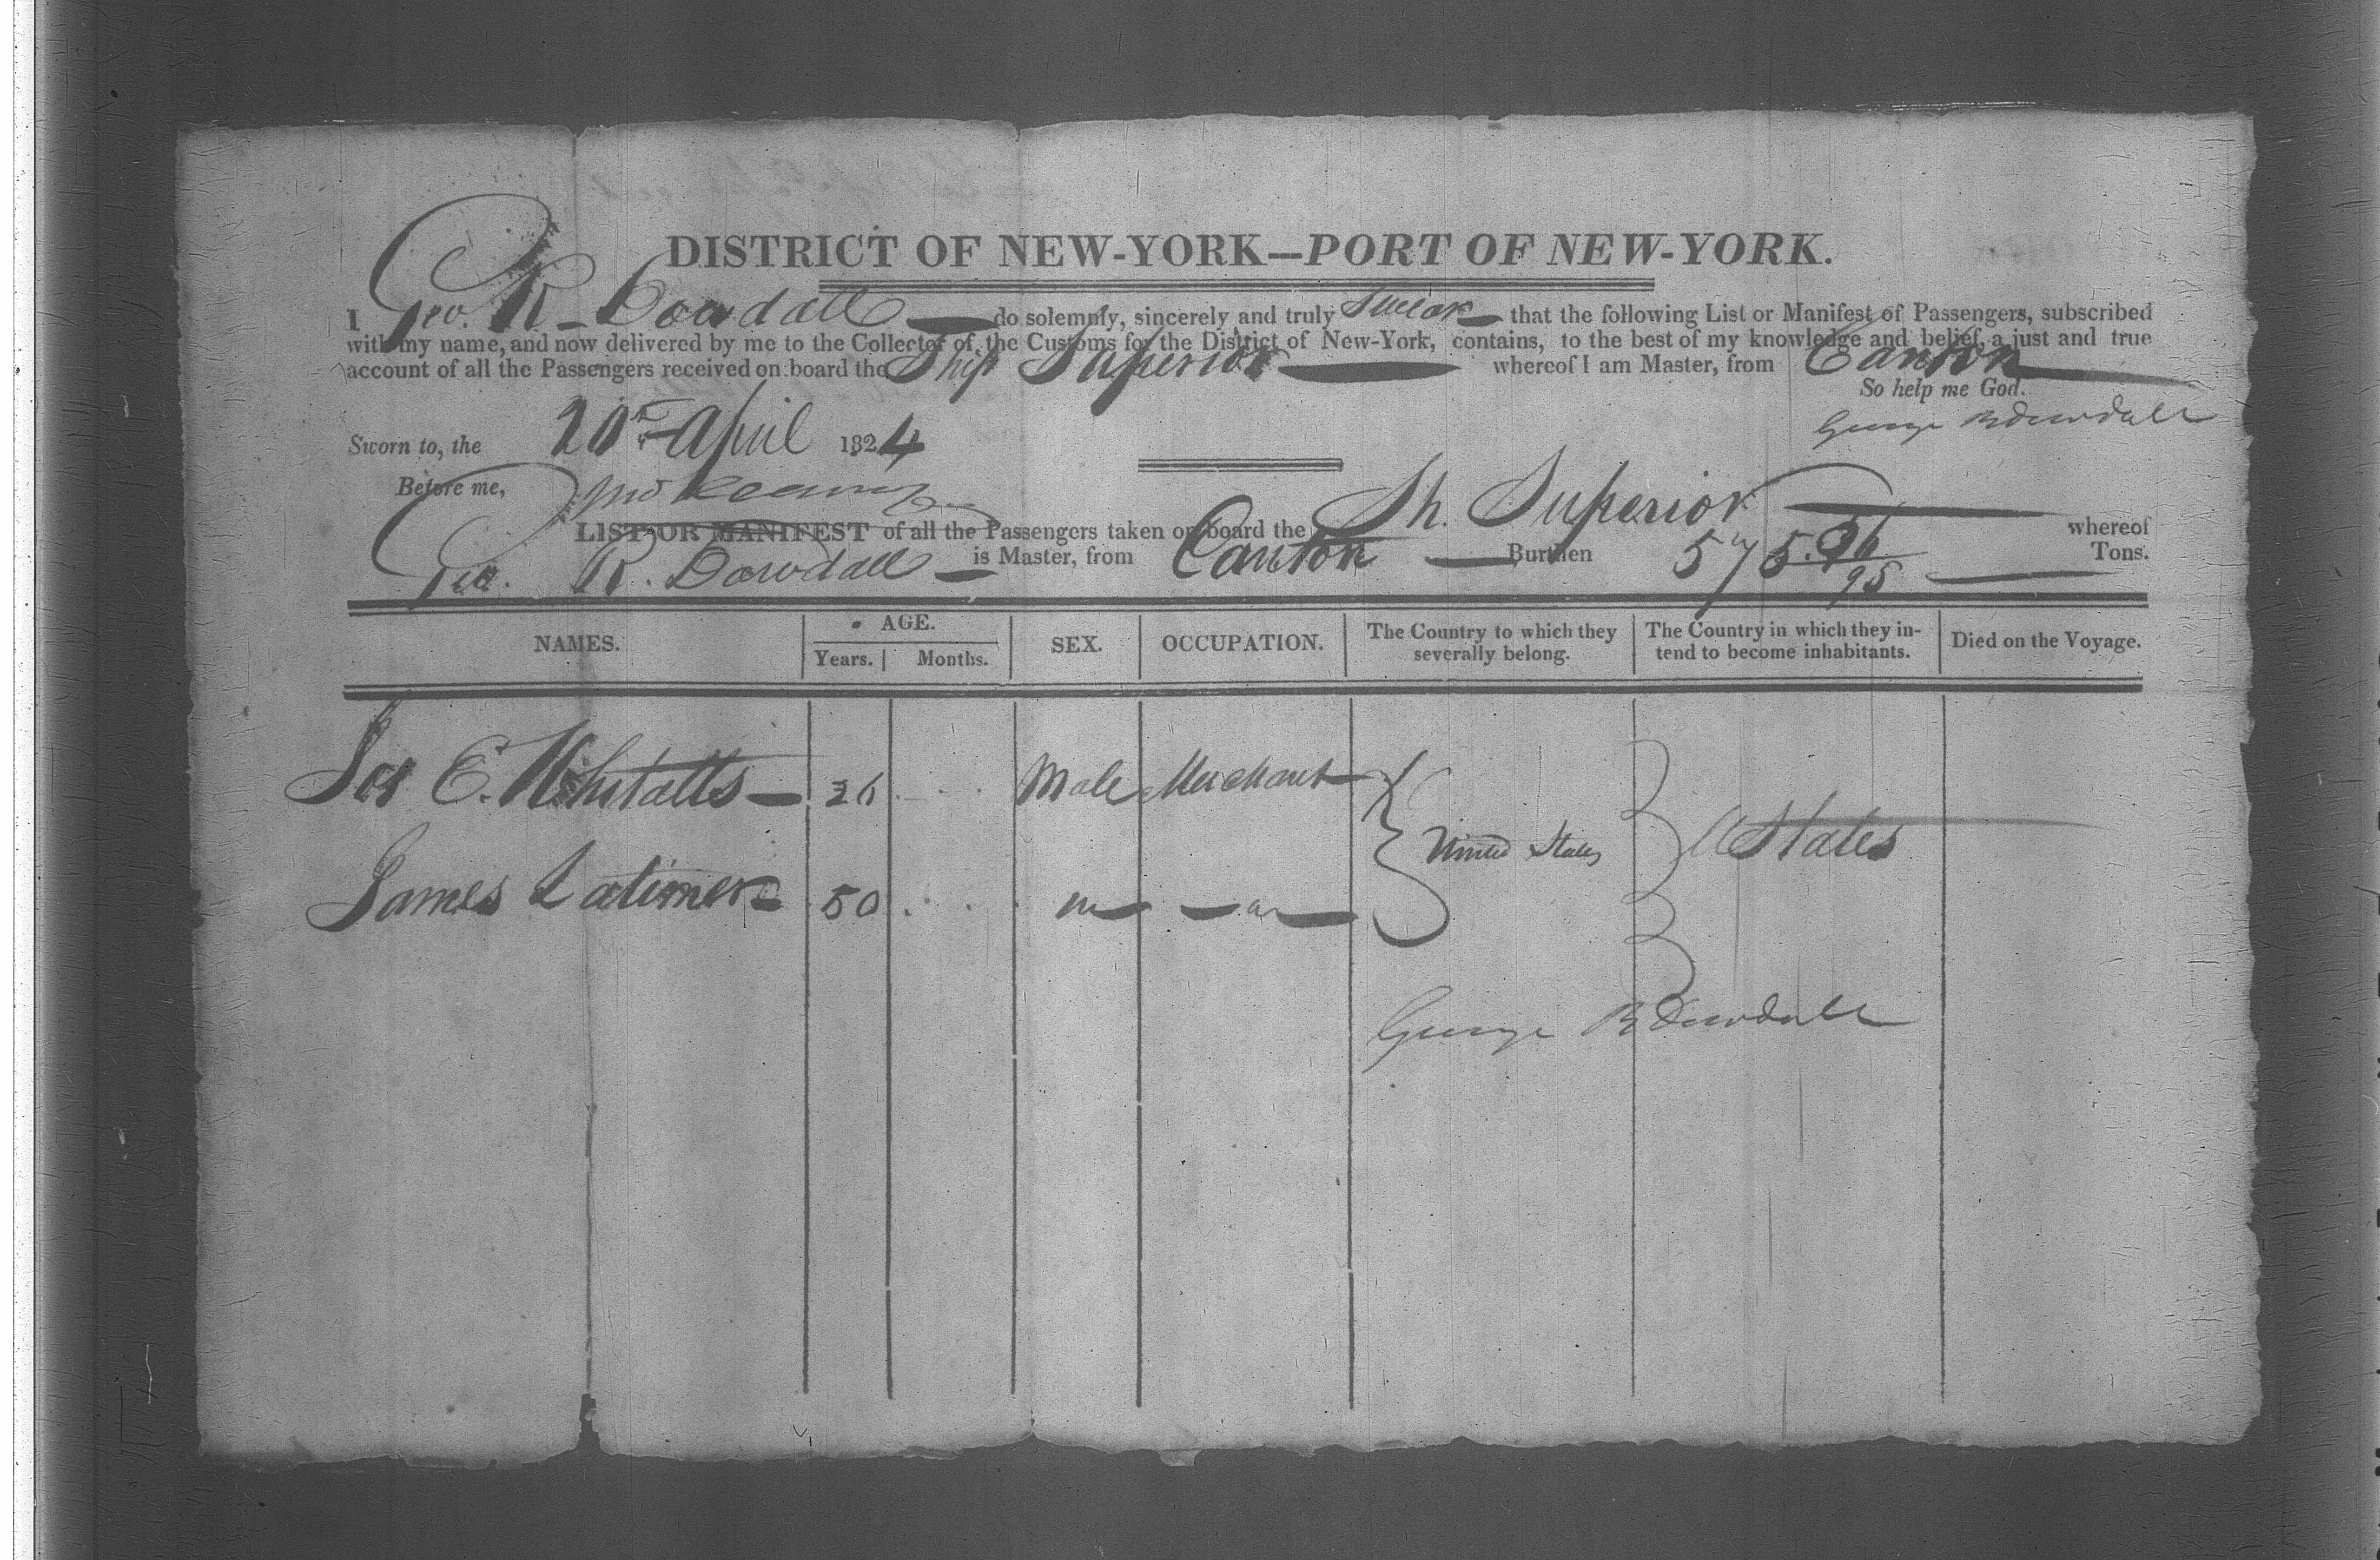 DISTRICT OF NEW-YORK—PORT OF NEW-YORK.
I Geo. R. Dowdall do solemnly, sincerely and truly Swear that the following List or Manifest of Passengers, subscribed
with my name, and now delivered by me to the Collector of the Customs for the District of New-York, contains, to the best of my knowledge and belief, a just and true
account of all the Passengers received on board the Ship Superior whereof I am Master, from Canton
So help me God.
George R Dowdall
Sworn to, the 20th April 1824
Before me,
LIST OR MANIFEST of all the Passengers taken on board the Sh. Superior whereof
Geo. R. Dowdall is Master, from Canton Burthen 575 Tons.
NAMES. AGE. Years. Months. SEX. OCCUPATION. The Country to which they severally belong. The Country in which they intend to become inhabitants. Died on the Voyage.
E. 26 Male Merchant
United States U States
James Latimer 50 m
George R Dowdall